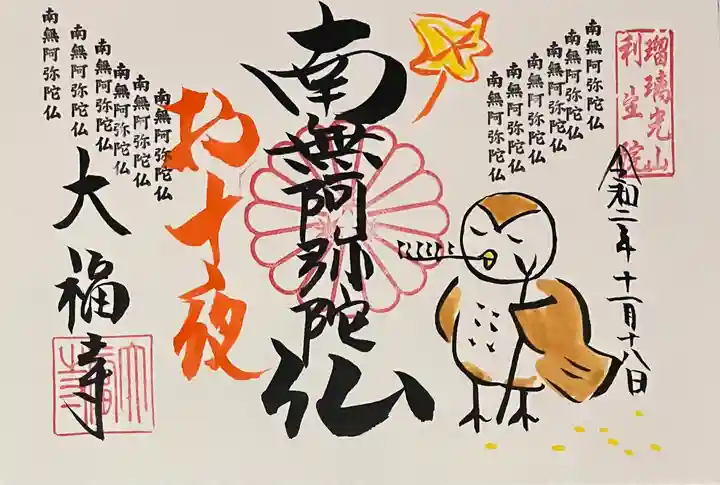 瑠璃光山
利生院
令和二年十一月十八日
南無阿弥陀仏
南無阿弥陀仏
南無阿弥陀仏
南無阿弥陀仏
南無阿弥陀仏
南無阿弥陀仏
南無阿弥陀仏
お十夜
南無阿弥陀仏
南無阿弥陀仏
南無阿弥陀仏
南無阿弥陀仏
南無阿弥陀仏
南無阿弥陀仏
大福寺
大福寺